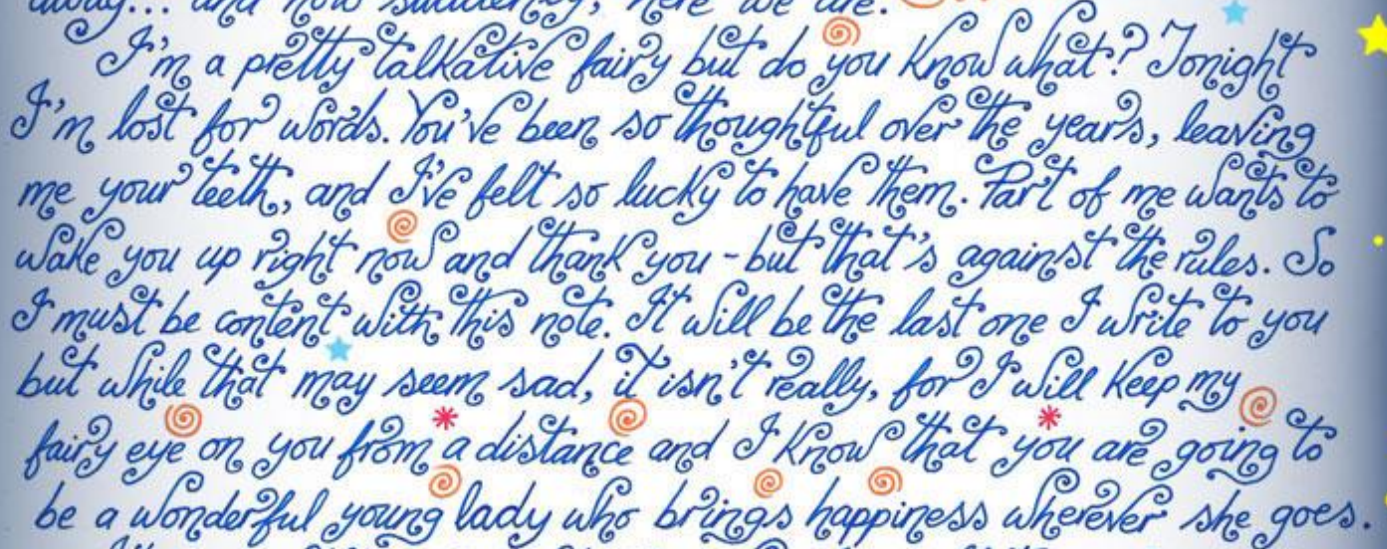 away... and now suddenly, here we are.
I'm a pretty talkative fairy but do you know what? Tonight
I'm lost for words. You've been so thoughtful over the years, leaving
me your teeth, and I've felt so lucky to have them. Part of me wants to
wake you up right now and thank you - but that's against the rules. So
I must be content with this note. It will be the last one I write to you
but while that may seem sad, it isn't really, for I will keep my
fairy eye on you from a distance and I know that you are going to
be a wonderful young lady who brings happiness wherever she goes.